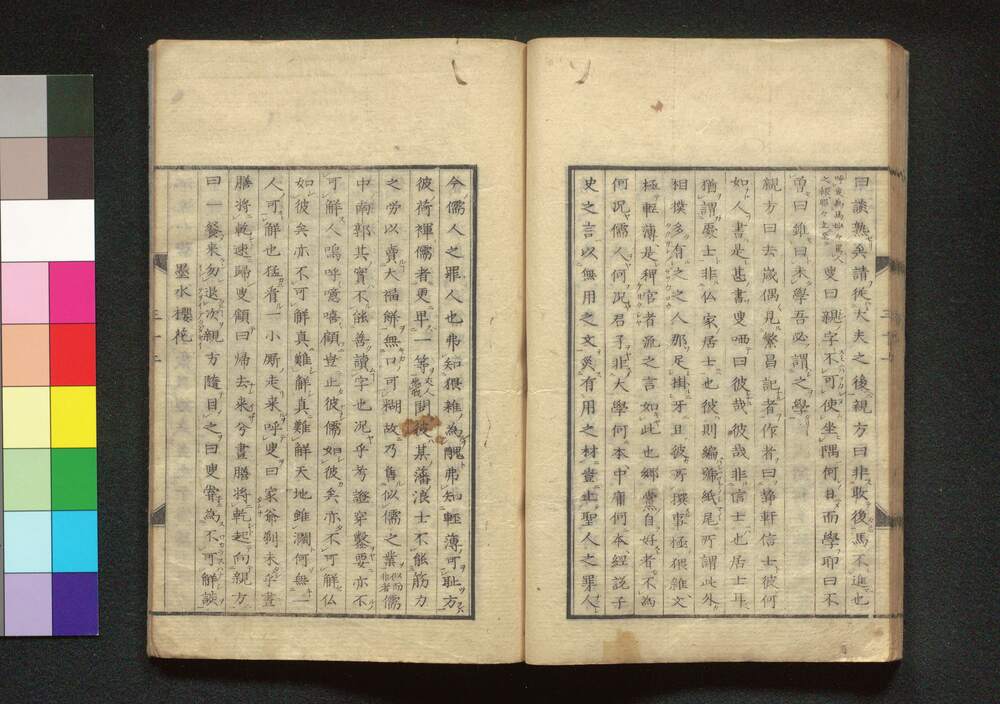 曰談熟矣請從大夫之後親方曰非敢後馬不進也
叟曰親字不可使坐隅何目而學耶曰不
曾曰雖曰未學吾必謂之學
親方曰去歲偶見繁昌記者作者曰静軒信士彼何
如人書是甚書叟哂曰彼哉彼哉非信士也居士耳
猶謂處士非仏家居士也彼則編籬紙尾所謂此外
相撲多有之之人那足掛牙且彼所撰事極猥雜文
極輕薄是稗官者流之言如此也鄉黨自好者不為
何況儒人何況君子非大學何本中庸何本經説子
史之言以無用之文災有用之材豈止聖人之罪人
今儒人之罪人也弗知猥雜為醜弗知輕薄可耻方
彼荷褌儒者更卑一等聞彼其藩浪士不能筋力
之勞以賣大福餅無口可糊故乃售似儒之業似而非者儒
中南郭其實不能善讀字也況乎考證穿鑿要亦不
可解人嗚呼噫嘻顧豈止彼儒如彼矣亦不可解仏
如彼矣亦不可解真難解真難解天地雖濶何無一
人可解也猛看一小厮走来呼叟曰家爺剃未乎晝
膳將乾速歸叟顧曰帰去来兮晝膳將乾起向親方
曰一餐来勿退次親方隨目之曰叟常為不可解談
墨水櫻花
三十二